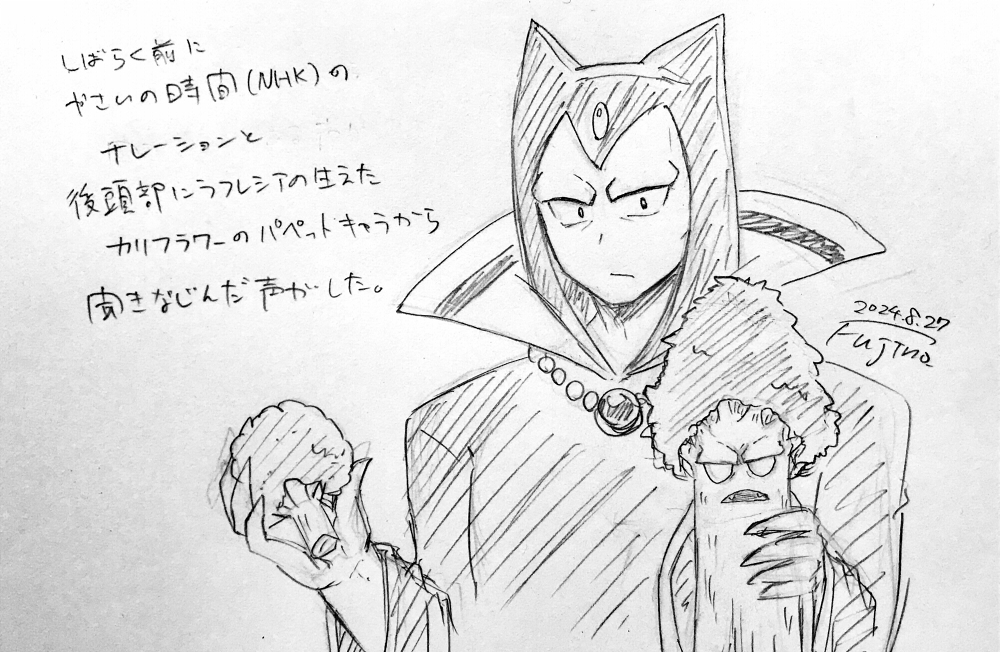 しばらく前に
やさいの時間(NHK)の
ナレーションと
後頭部にラフレシアの生えた
カリフラワーのパペットキャラから
聞きなじんだ声がした。
2024.8.27
Fujino